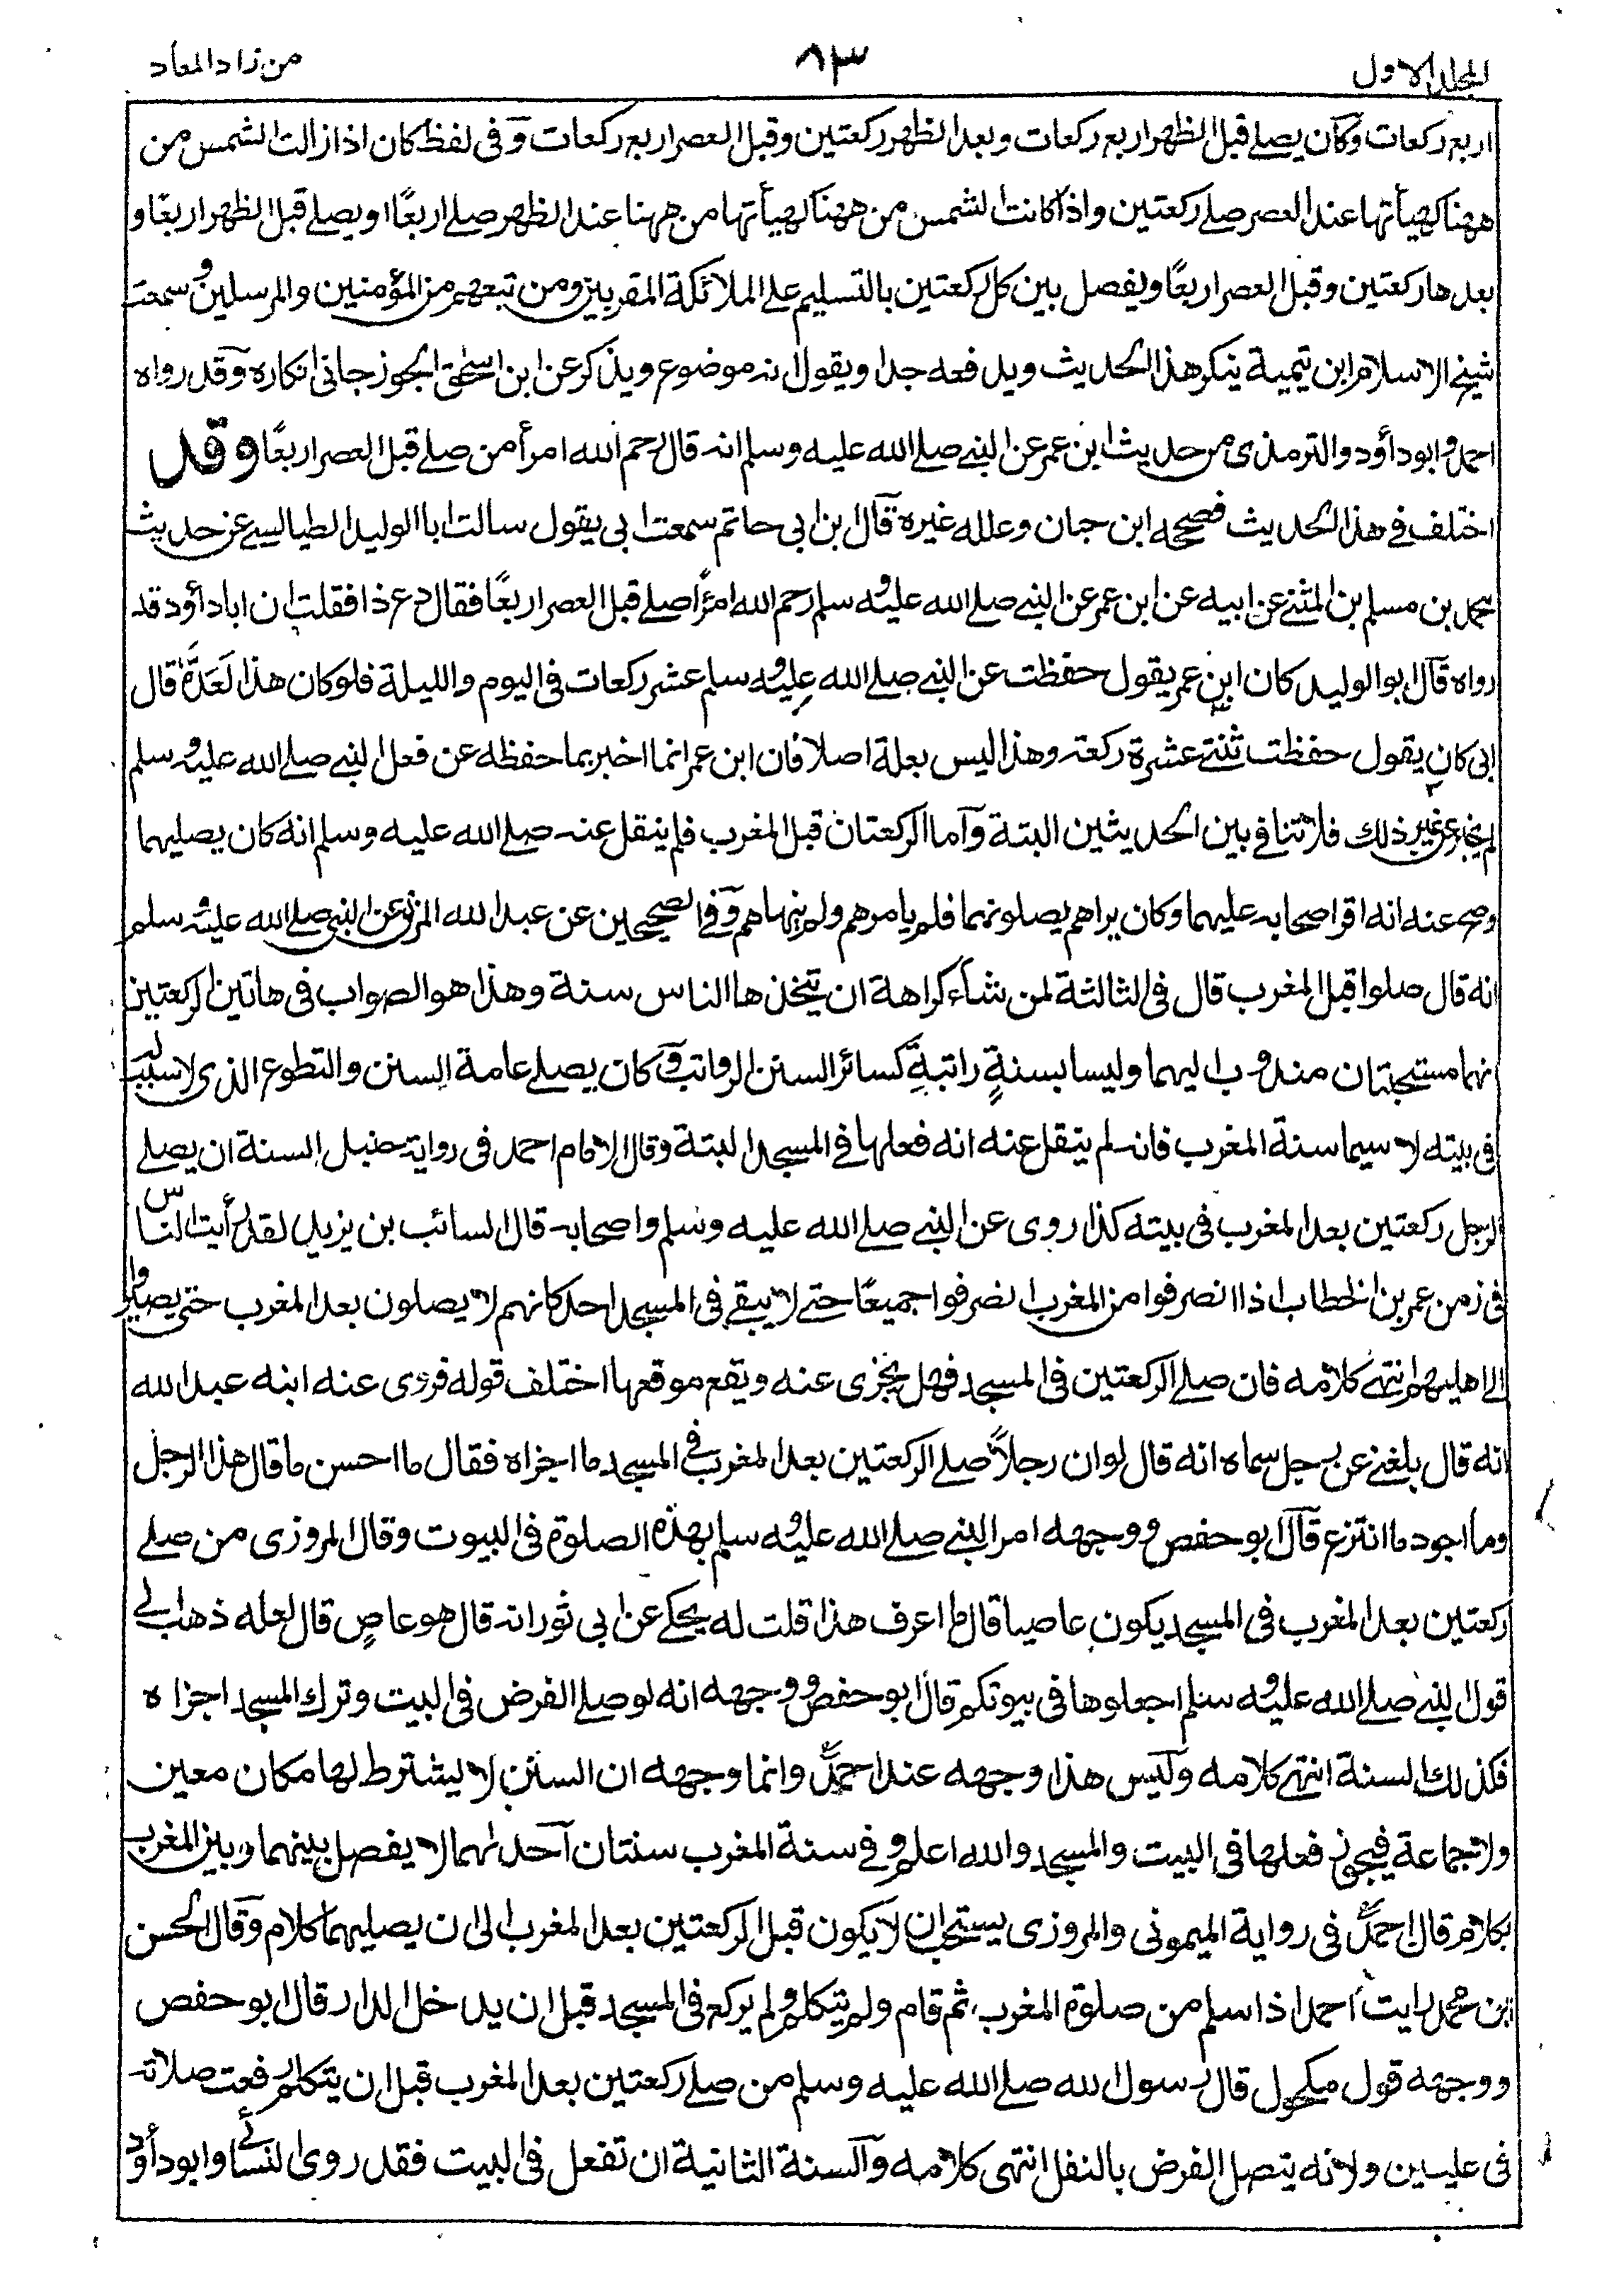 المجلد الاول
٨٣
من زاد المعاد
اربع ركعات وكان يصلے قبل الظهر اربع ركعات وبعد الظهر ركعتين وقبل العصر اربع ركعات وفى لفظ كان اذا زالت الشمس من
ههنا كهيأتها عند العصر صلے ركعتين واذا كانت الشمس من ههنا كهيأتها من ههنا عند الظهر صلے اربعًا ويصلے قبل الظهر اربعًا و
بعدها ركعتين وقبل العصر اربعًا ويفصل بين كل ركعتين بالتسليم علے الملائكة المقربين ومن تبعهم من المؤمنين والمرسلين وسمعت
شيخ الاسلام ابن تيمية ينكر هذا الحديث ويدفعه جدا ويقول انه موضوع ويذكر عن ابن اسحٰق الجوزجانى انكاره وقد رواه
احمد وابو دأود والترمذى من حديث ابن عمر عن النبے صلے الله عليه وسلم انه قال رحم الله امرأ من صلے قبل العصر اربعًا وقد
اختلف فے هذا الحديث فصححه ابن حبان وعلله غيره قال ابن ابى حاتم سمعت ابى يقول سالت ابا الوليد الطيالسے عن حديث
محمد بن مسلم بن المثنے عن ابيه عن ابن عمر عن النبے صلے الله عليه وسلم رحم الله امرًأ صلے قبل العصر اربعًا فقال دع ذا فقلت ان ابا دأود قد
رواه قال ابو الوليد كان ابن عمر يقول حفظت عن النبے صلے الله عليه وسلم عشر ركعات فى اليوم والليلة فلو كان هذا لَعَدَّهٗ قال
ابى كان يقول حفظت ثنتے عشرة ركعة وهذا ليس بعلة اصلا فان ابن عمر انما اخبر بما حفظه عن فعل النبے صلے الله عليه وسلم
لم يخبر عن غير ذلك فلا تنافى بين الحديثين البتة واما الركعتان قبل المغرب فلم ينقل عنه صلے الله عليه وسلم انه كان يصليهما
وصح عنه انه اقر اصحابه عليهما وكان يراهم يصلونهما فلم يامرهم ولم ينهاهم وفے الصحيحين عن عبد الله المزنى عن النبى صلے الله عليه وسلم
انه قال صلوا قبل المغرب قال فى الثالثة لمن شاء كراهة ان يتخذها الناس سنة وهذا هو الصواب فى هاتين الركعتين
انهما مستحبتان مندوب اليهما وليسا بسنةٍ راتبةٍ كسائر السنن الرواتب وكان يصلے عامة السنن والتطوع الذى لا سبب له
فى بيته لا سيما سنة المغرب فانه لم ينقل عنه انه فعلها فے المسجد البتة وقال الامام احمد فى رواية حنبل السنة ان يصلے
الرجل ركعتين بعد المغرب فى بيته كذا روى عن النبے صلے الله عليه وسلم واصحابه قال السائب بن يزيد لقد رأيت الناس
فى زمن عمر بن الخطاب اذا انصرفوا من المغرب انصرفوا جميعًا حتے لا يبقے فى المسجد احد كانهم لا يصلون بعد المغرب حتى يصيروا
الے اهليهم انتهے كلامه فان صلے الركعتين فى المسجد فهل يجزى عنه ويقع موقعها اختلف قوله فروى عنه ابنه عبد الله
انه قال بلغنے عن رجل سماه انه قال لو ان رجلًا صلے الركعتين بعد المغرب فے المسجد ما اجزاه فقال ما احسن ما قال هذا الرجل
وما اجود ما انتزع قال ابو حفص ووجهه امر النبے صلے الله عليه وسلم بهذه الصلوة فى البيوت وقال المروزى من صلے
ركعتين بعد المغرب فى المسجد يكون عاصيا قال ما اعرف هذا قلت له يحكے عن ابى ثور انه قال هو عاصٍ قال لعله ذهب الے
قول النبے صلے الله عليه وسلم اجعلوها فى بيوتكم قال ابو حفص ووجهه انه لو صلے الفرض فى البيت وترك المسجد اجزاه
فكذلك السنة انتهے كلامه وليس هذا وجهه عند احمدؒ وانما وجهه ان السنن لا يشترط لها مكان معين
ولا جماعة فيجوز فعلها فى البيت والمسجد والله اعلم وفے سنة المغرب سنتان احدٰهما لا يفصل بينهما وبين المغرب
بكلام قال احمدؒ فى رواية الميمونى والمروزى يستحب ان لا يكون قبل الركعتين بعد المغرب الى ان يصليهما كلام وقال الحسن
بن محمد رايت احمد اذا سلم من صلوة المغرب ثم قام ولم يتكلم ولم يركع فى المسجد قبل ان يدخل الدار قال ابو حفص
ووجهه قول مكحول قال رسول الله صلے الله عليه وسلم من صلے ركعتين بعد المغرب قبل ان يتكلم رفعت صلاته
فى عليين ولانه يتصل الفرض بالنفل انتهى كلامه والسنة الثانية ان تفعل فى البيت فقد روى النسائے وابو دأود